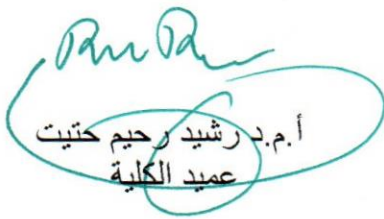 أ.م.د رشيد رحيم حتيت
عميد الكلية